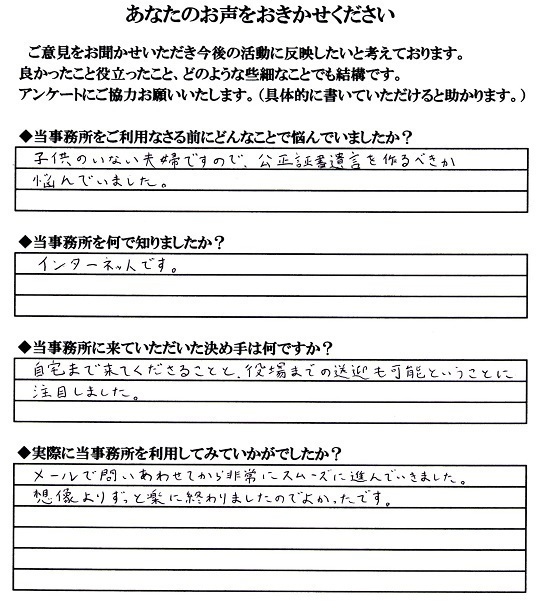 あなたのお声をおきかせください
ご意見をお聞かせいただき今後の活動に反映したいと考えております。
良かったこと役立ったこと、どのような些細なことでも結構です。
アンケートにご協力お願いいたします。（具体的に書いていただけると助かります。）
◆当事務所をご利用なさる前にどんなことで悩んでいましたか？
子供のいない夫婦ですので、公正証書遺言を作るべきか
悩んでいました。
◆当事務所を何で知りましたか？
インターネットです。
◆当事務所に来ていただいた決め手は何ですか？
自宅まで来てくださることと、役場までの送迎も可能ということに
注目しました。
◆実際に当事務所を利用してみていかがでしたか？
メールで問いあわせてから非常にスムーズに進んでいきました。
想像よりずっと楽に終わりましたのでよかったです。